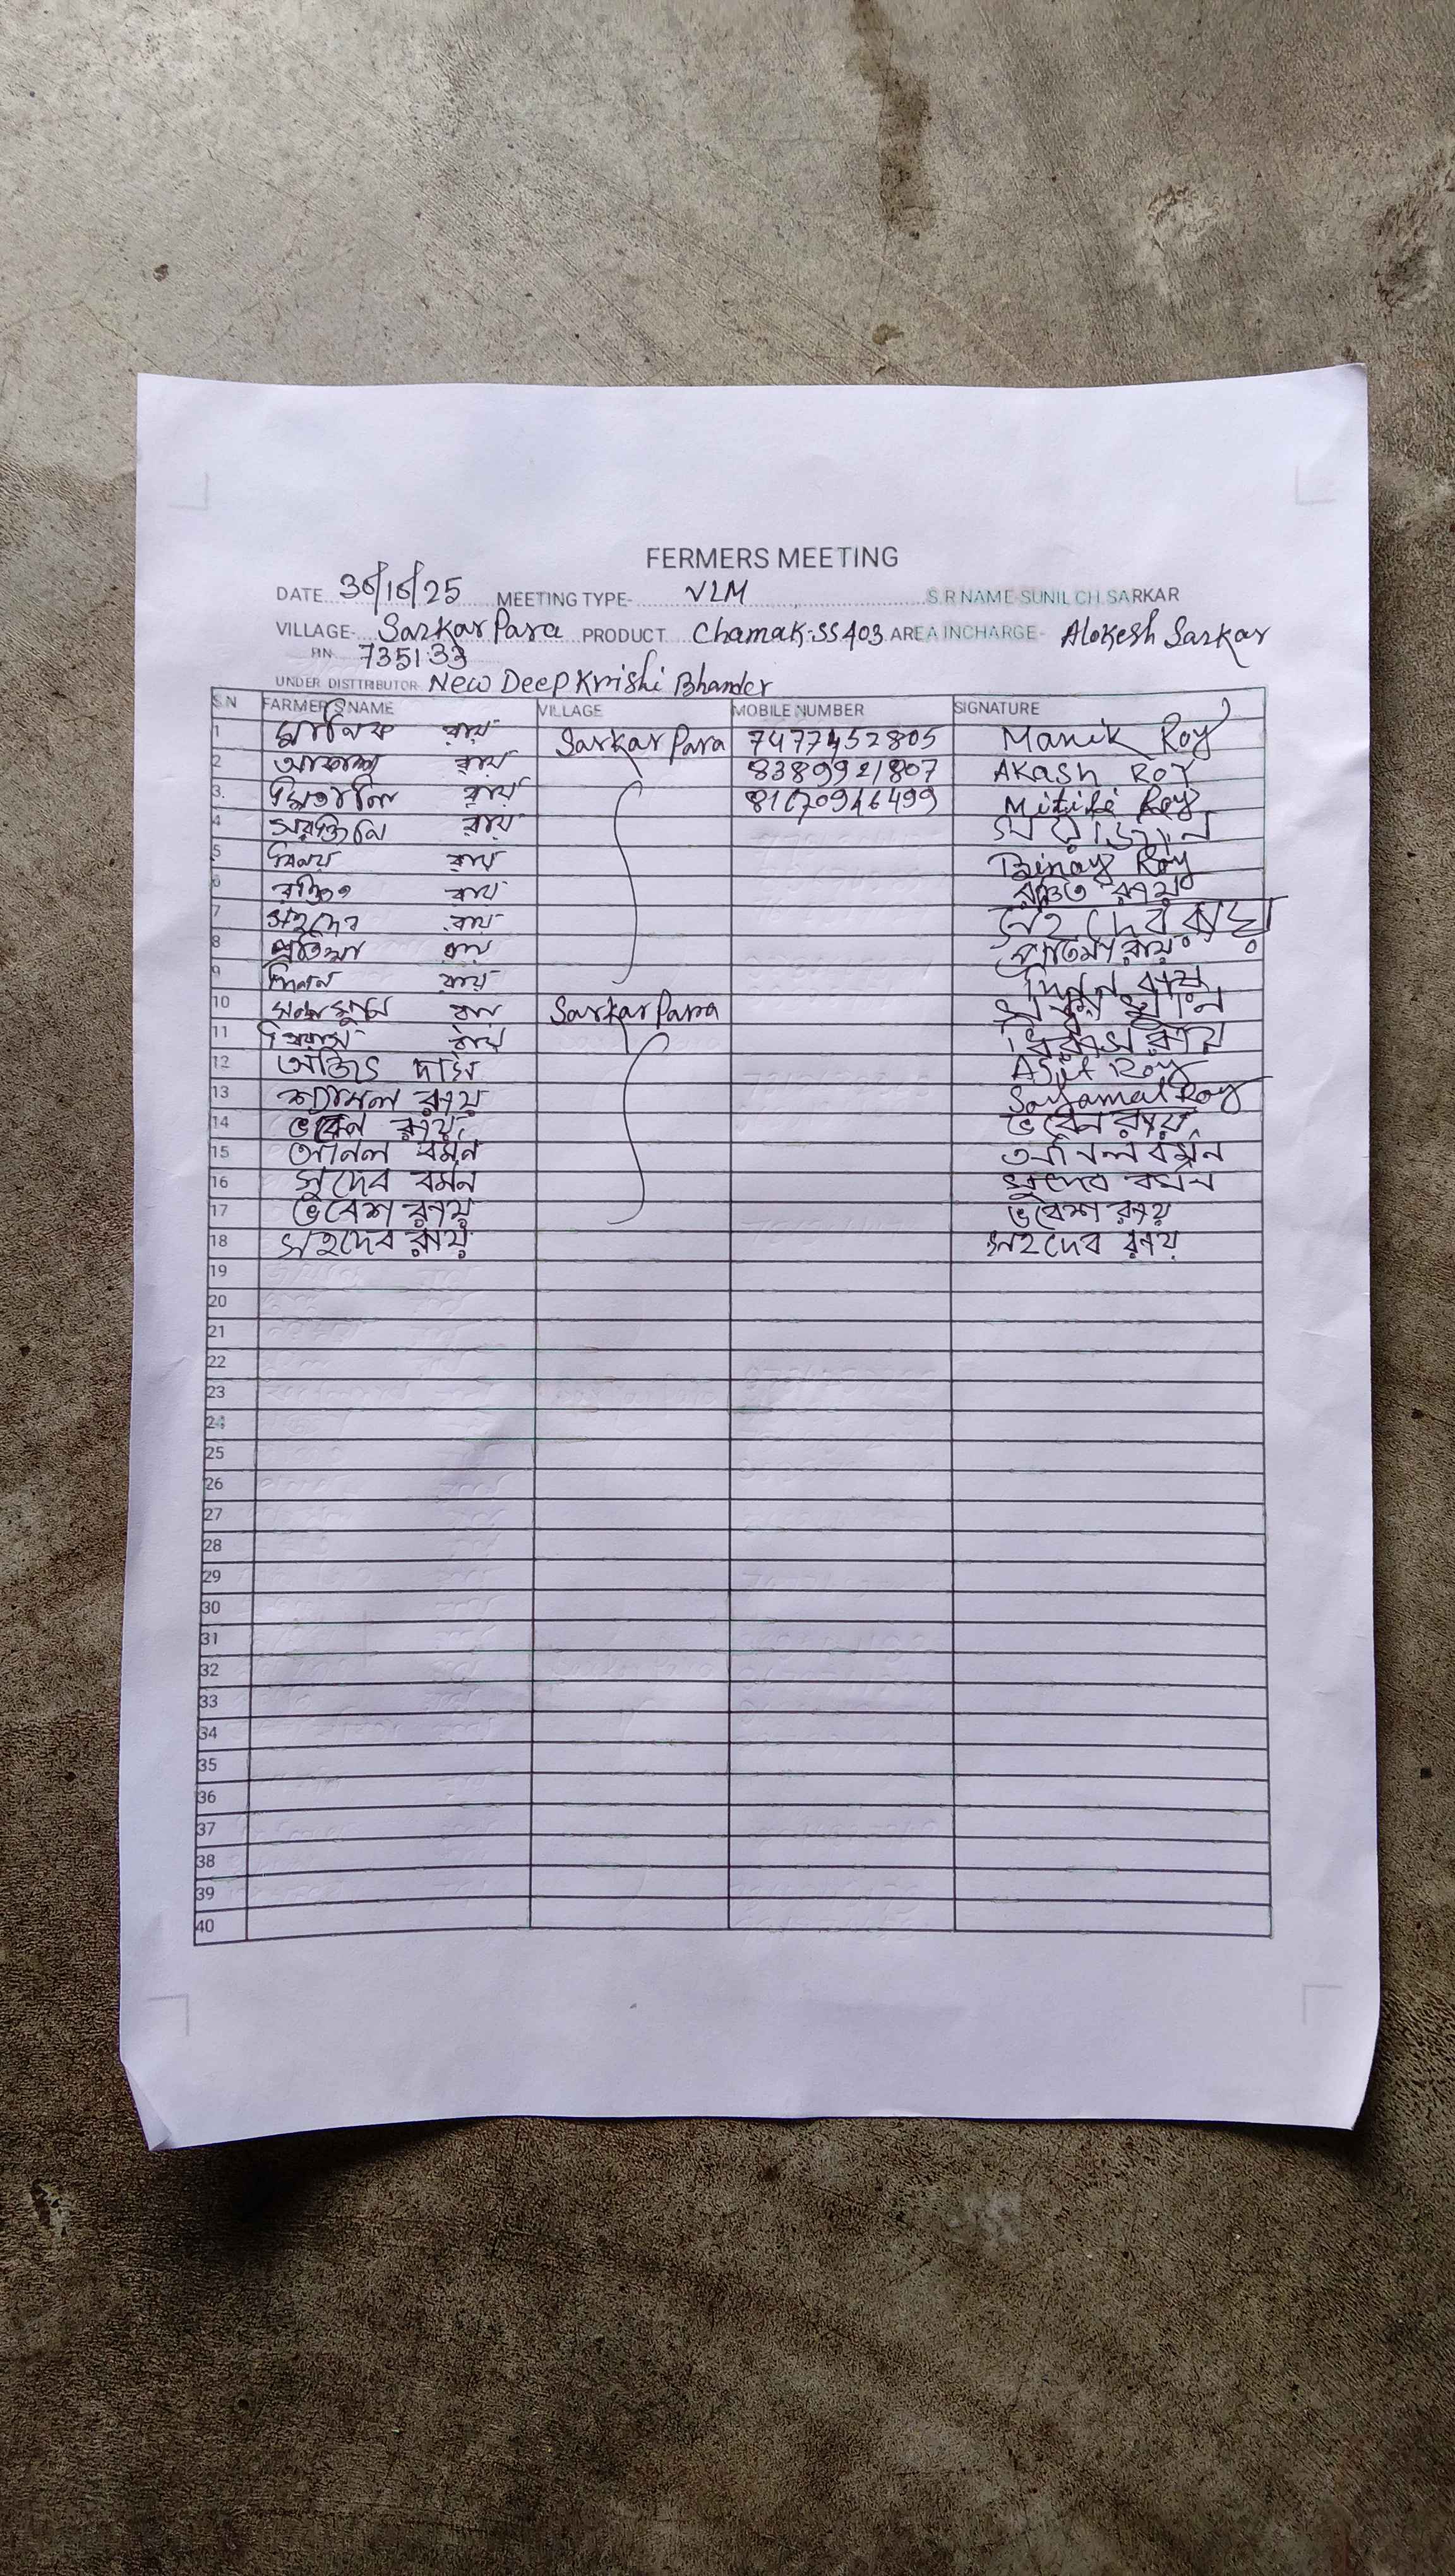 FERMERS MEETING
DATE 30/10/25 MEETING TYPE- VLM S.R NAME-SUNIL CH.SARKAR
VILLAGE- Sarkar Para PRODUCT Chamak-SS403 AREA INCHARGE- Alokesh Sarkar
PIN 735133
UNDER DISTTRIBUTOR- New Deep Krishi Bhander
S.N FARMER'S NAME VILLAGE MOBILE NUMBER SIGNATURE
1 মানিক রায় Sarkar Para 7477452805 Manik Roy
2 আকাশ রায় 8389921807 Akash Roy
3. মিতালি রায় Mitili Roy
4 রায়
5 বিনয় রায় Binay Roy
6 রঞ্জিত রায় রঞ্জিত রায়
7 সহদেব রায় সহদেব রায়
8 প্রতিমা রায় প্রতিমা রায়
9 রায় রায়
10 Sarkar Para
11 রায় রায়
12 অজিৎ দাস Ajit Roy
13 শ্যামল রায় Sayamal Roy
14 ভবেন রায় ভবেন রায়
15 অনিল বর্মন অনিল বর্মন
16 সুদেব বর্মন সুদেব বর্মন
17 ভবেশ রায় ভবেশ রায়
18 সহদেব রায় সহদেব রায়
19
20
21
22
23
24
25
26
27
28
29
30
31
32
33
34
35
36
37
38
39
40